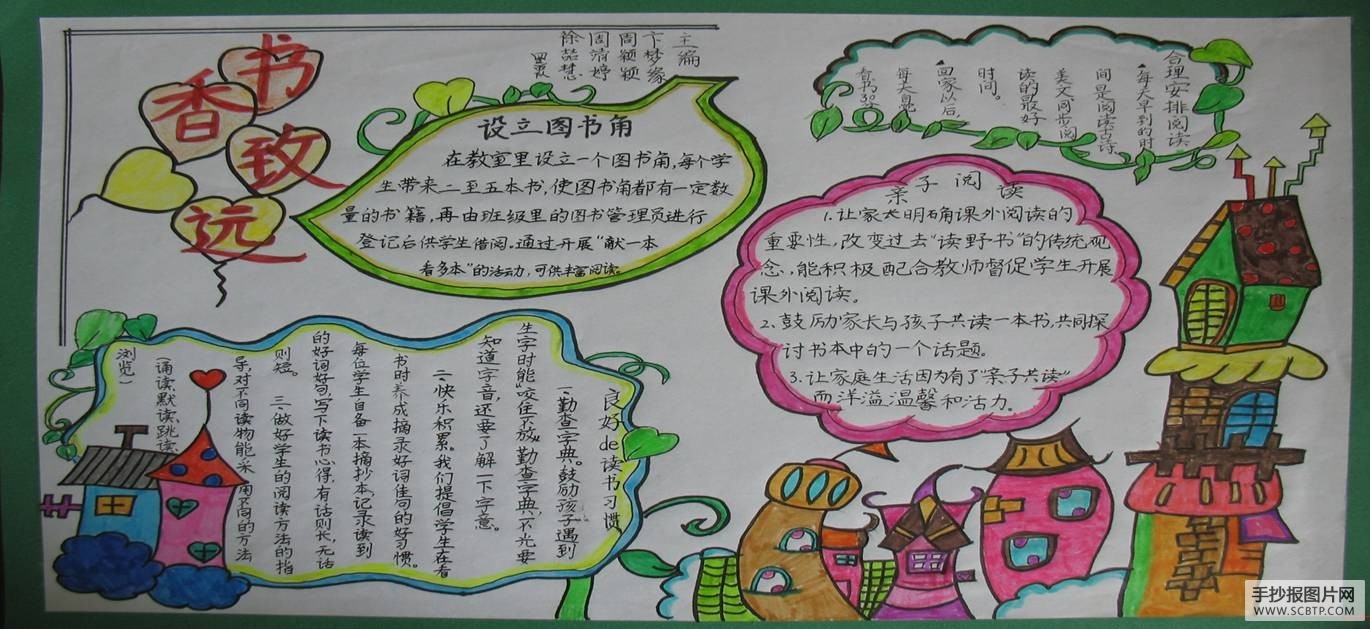 书
香
致
远
主编
卞梦缘
周颖颖
周清婷
徐喆慧
设立图书角
在教室里设立一个图书角,每个学
生带来二至五本书,使图书角都有一定数
量的书籍,再由班级里的图书管理员进行
登记后供学生借阅。通过开展“献一本
看多本”的活动,可供丰富阅读。
合理安排阅读
每天早到的时
间是阅读古诗,
美文同步阅
读的最好
时间。
回家以后,
每天自觉
看书30分
亲子阅读
1.让家长明确课外阅读的
重要性,改变过去“读野书”的传统观
念,能积极配合教师督促学生开展
课外阅读。
2、鼓励家长与孩子共读一本书,共同探
讨书本中的一个话题。
3.让家庭生活因为有了“亲子共读”
而洋溢温馨和活力。
良好de读书习惯
一、勤查字典。鼓励孩子遇到
生字时能“咬住不放”,勤查字典,不光要
知道字音,还要了解一下字意。
二、快乐积累。我们提倡学生在看
书时养成摘录好词佳句的好习惯。
每位学生自备一本摘抄本,记录读到
的好词好句,写下读书心得,有话则长,无话
则短。
三、做好学生的阅读方法的指
导,对不同读物能采用不同的方法
(诵读、默读、跳读、
浏览)
手抄报图片网
WWW.SCBTP.COM